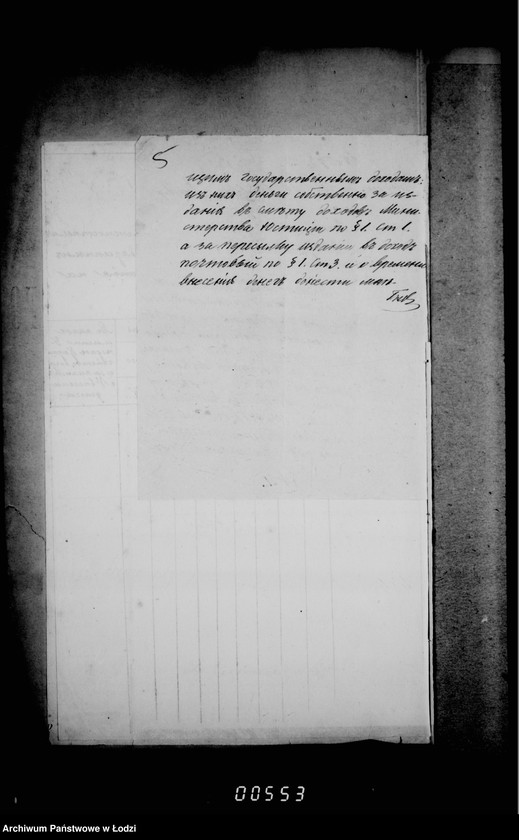 5
щимъ Государственнымъ доходамъ:
изъ нихъ деньги собственно за из-
данія въ смѣту доходовъ Мини-
стерства Юстиціи по § 1. Ст 1.
а за пересылку изданій въ доходъ
почтовый по § 1. Ст 3. и о времени
внесенія денегъ донести мнѣ.
00553
Archiwum Państwowe w Łodzi